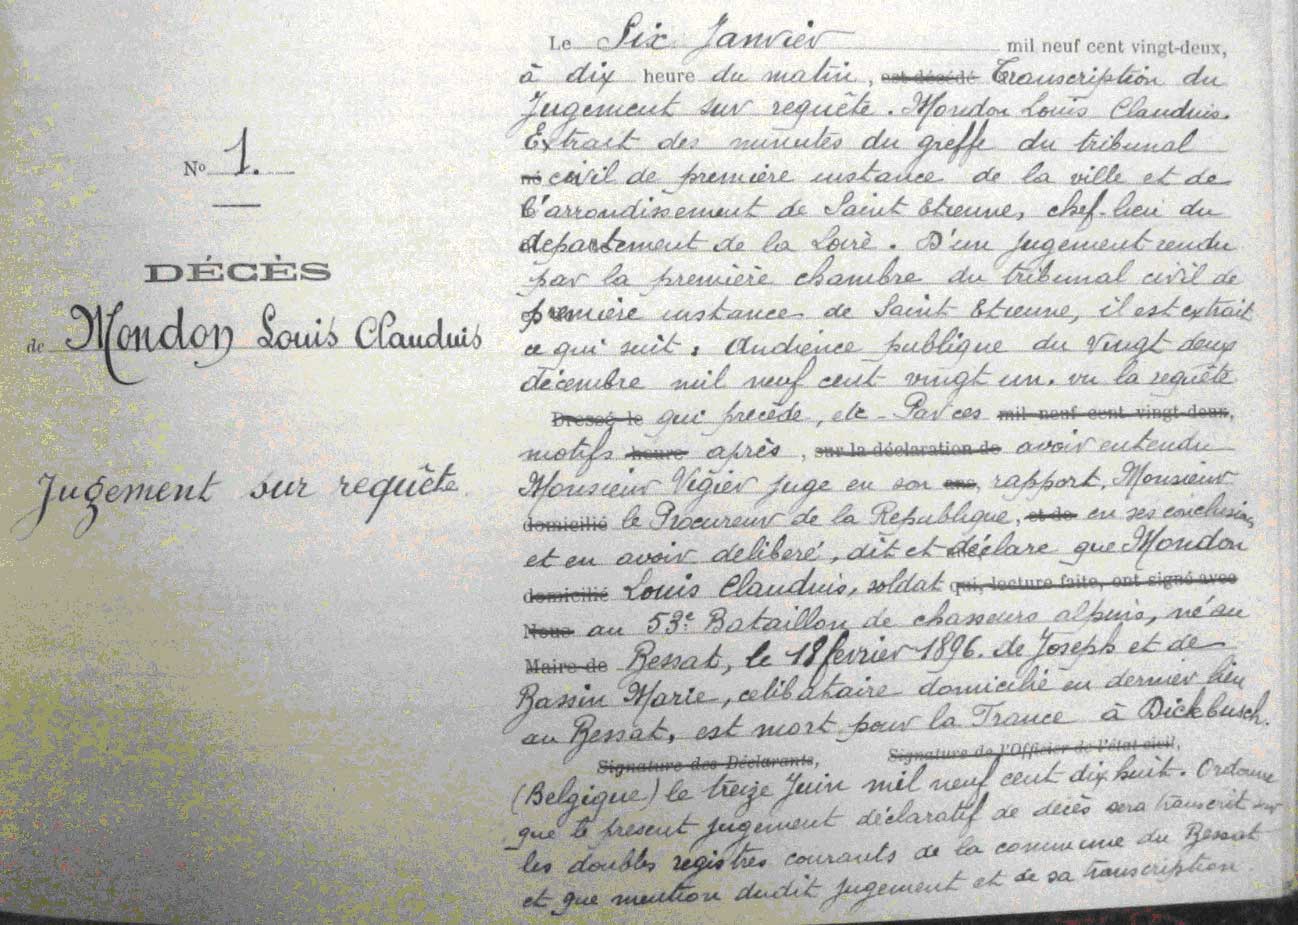 No 1.
DÉCÈS
de Mondon Louis Claudius
Jugement sur requête
Le Six Janvier mil neuf cent vingt-deux,
à dix heure du matin, est décédé Transcription du
Jugement sur requête. Mondon Louis Claudius.
Extrait des minutes du greffe du tribunal
né civil de première instance de la ville et de
l'arrondissement de Saint Etienne, chef-lieu du
département de la Loire. D'un jugement rendu
par la première chambre du tribunal civil de
première instance de Saint Etienne, il est extrait
ce qui suit : Audience publique du vingt deux
décembre mil neuf cent vingt un. vu la requête
Dressé le qui précède, etc - Par ces mil neuf cent vingt-deux,
motifs heure après, sur la déclaration de avoir entendu
Monsieur Vigier juge en son ans, rapport, Monsieur
domicilié le Procureur de la Republique, et de en ses conclusions
et en avoir deliberé, dit et déclare que Mondon
domicilié Louis Claudius, soldat qui, lecture faite, ont signé avec
Nous au 53e Bataillon de chasseurs alpins, né au
Maire de Bessat, le 18 fevrier 1896. de Joseph et de
Bassin Marie, celibataire domicilié en dernier lieu
au Bessat, est mort pour la France à Dickbusch.
Signature des Déclarants, Signature de l'Officier de l'état civil,
(Belgique) le treize Juin mil neuf cent dix huit. Ordonne
que le present jugement déclaratif de décès sera transcrit sur
les doubles registres courants de la commune du Bessat
et que mention dudit jugement et de sa transcription.